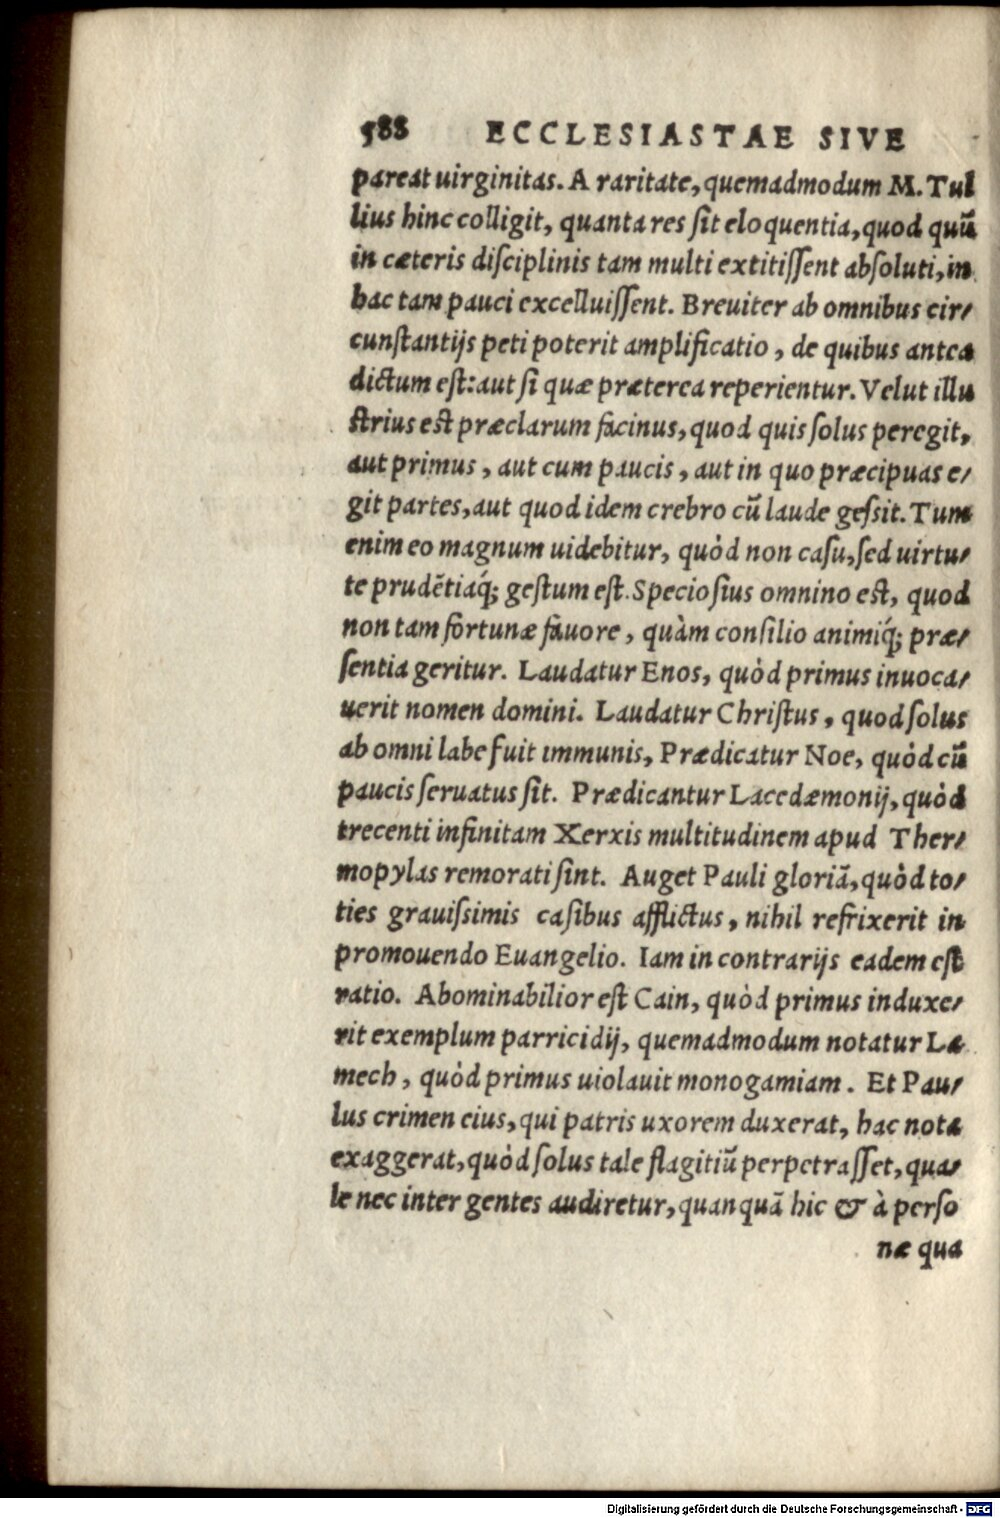 588 ECCLESIASTAE SIVE
pareat uirginitas. A raritate, quemadmodum M. Tul
lius hinc colligit, quanta res ſit eloquentia, quod quū
in cæteris diſciplinis tam multi extitiſſent abſoluti, in
hac tam pauci excelluiſſent. Breuiter ab omnibus cir⸗
cunſtantijs peti poterit amplificatio, de quibus antea
dictum eſt: aut ſi quæ præterea reperientur. Velut illu
ſtrius eſt præclarum facinus, quod quis ſolus peregit,
aut primus, aut cum paucis, aut in quo præcipuas e⸗
git partes, aut quod idem crebro cū laude geſsit. Tum
enim eo magnum uidebitur, quòd non caſu, ſed uirtu⸗
te prudẽtiaq́; geſtum eſt. Specioſius omnino eſt, quod
non tam fortunæ fauore, quàm conſilio animiq́; præ⸗
ſentia geritur. Laudatur Enos, quòd primus inuoca⸗
uerit nomen domini. Laudatur Chriſtus, quod ſolus
ab omni labe fuit immunis, Prædicatur Noe, quòd cū
paucis ſeruatus ſit. Prædicantur Lacedæmonij, quòd
trecenti infinitam Xerxis multitudinem apud Ther⸗
mopylas remorati ſint. Auget Pauli gloriā, quòd to⸗
ties grauiſsimis caſibus afflictus, nihil refrixerit in
promouendo Euangelio. Iam in contrarijs eadem eſt
ratio. Abominabilior eſt Cain, quòd primus induxe⸗
rit exemplum parricidij, quemadmodum notatur La
mech, quòd primus uiolauit monogamiam. Et Pau⸗
lus crimen eius, qui patris uxorem duxerat, hac nota
exaggerat, quòd ſolus tale flagitiū perpetraſſet, qua⸗
le nec inter gentes audiretur, quanquā hic & à perſo
næ qua
Digitalisierung gefördert durch die Deutsche Forschungsgemeinschaft - DFG